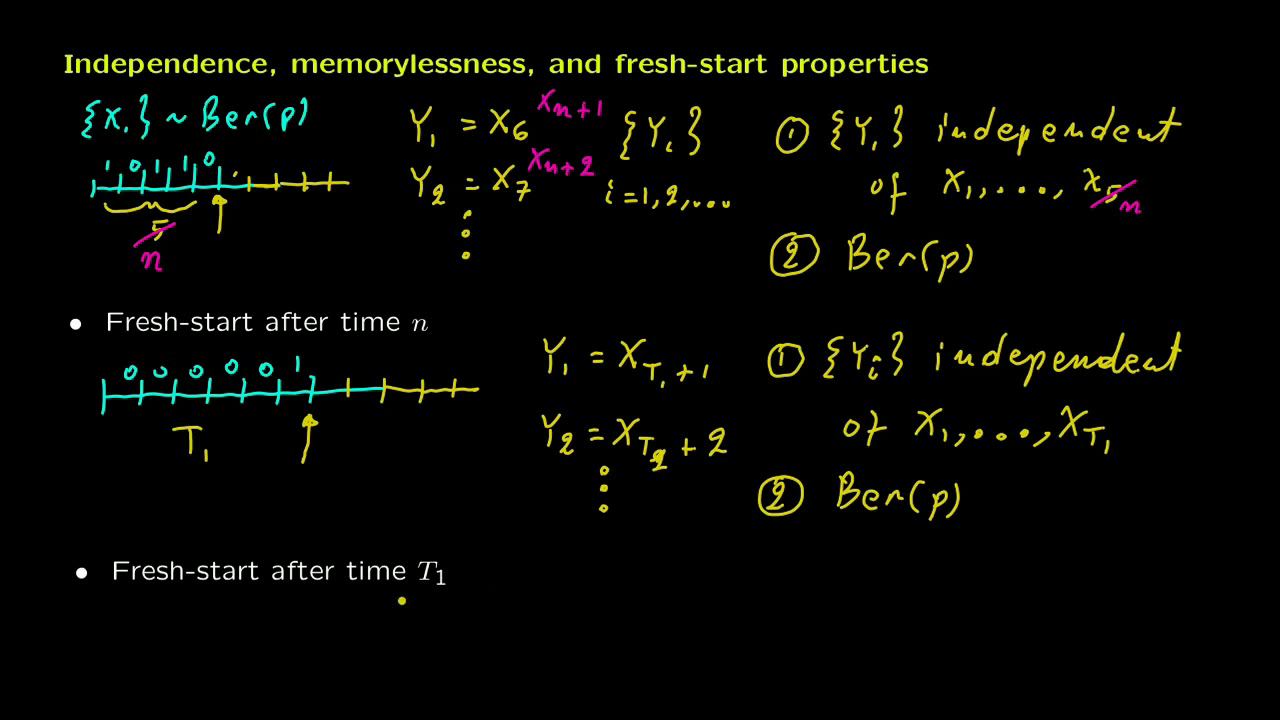 Independence, memorylessness, and fresh-start properties
{Xi} ~ Ber(p)
1 0 1 1 0
5
n
Y1 = X6 Xn+1
Y2 = X7 Xn+2
{Yi}
i = 1, 2, ...
① {Yi} independent
of X1, ..., X5 n
② Ber(p)
• Fresh-start after time n
0 0 0 0 0 1
T1
Y1 = XT1 + 1
Y2 = XT2 + 2
① {Yi} independent
of X1, ..., XT1
② Ber(p)
• Fresh-start after time T1